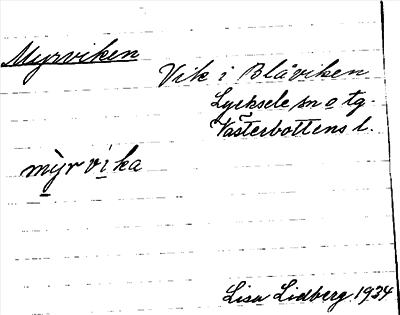 Myrviken
Vik i Blåviken
Lycksele sn o tg.
Västerbottens l.
mỳrvika
Lisa Lidberg 1934